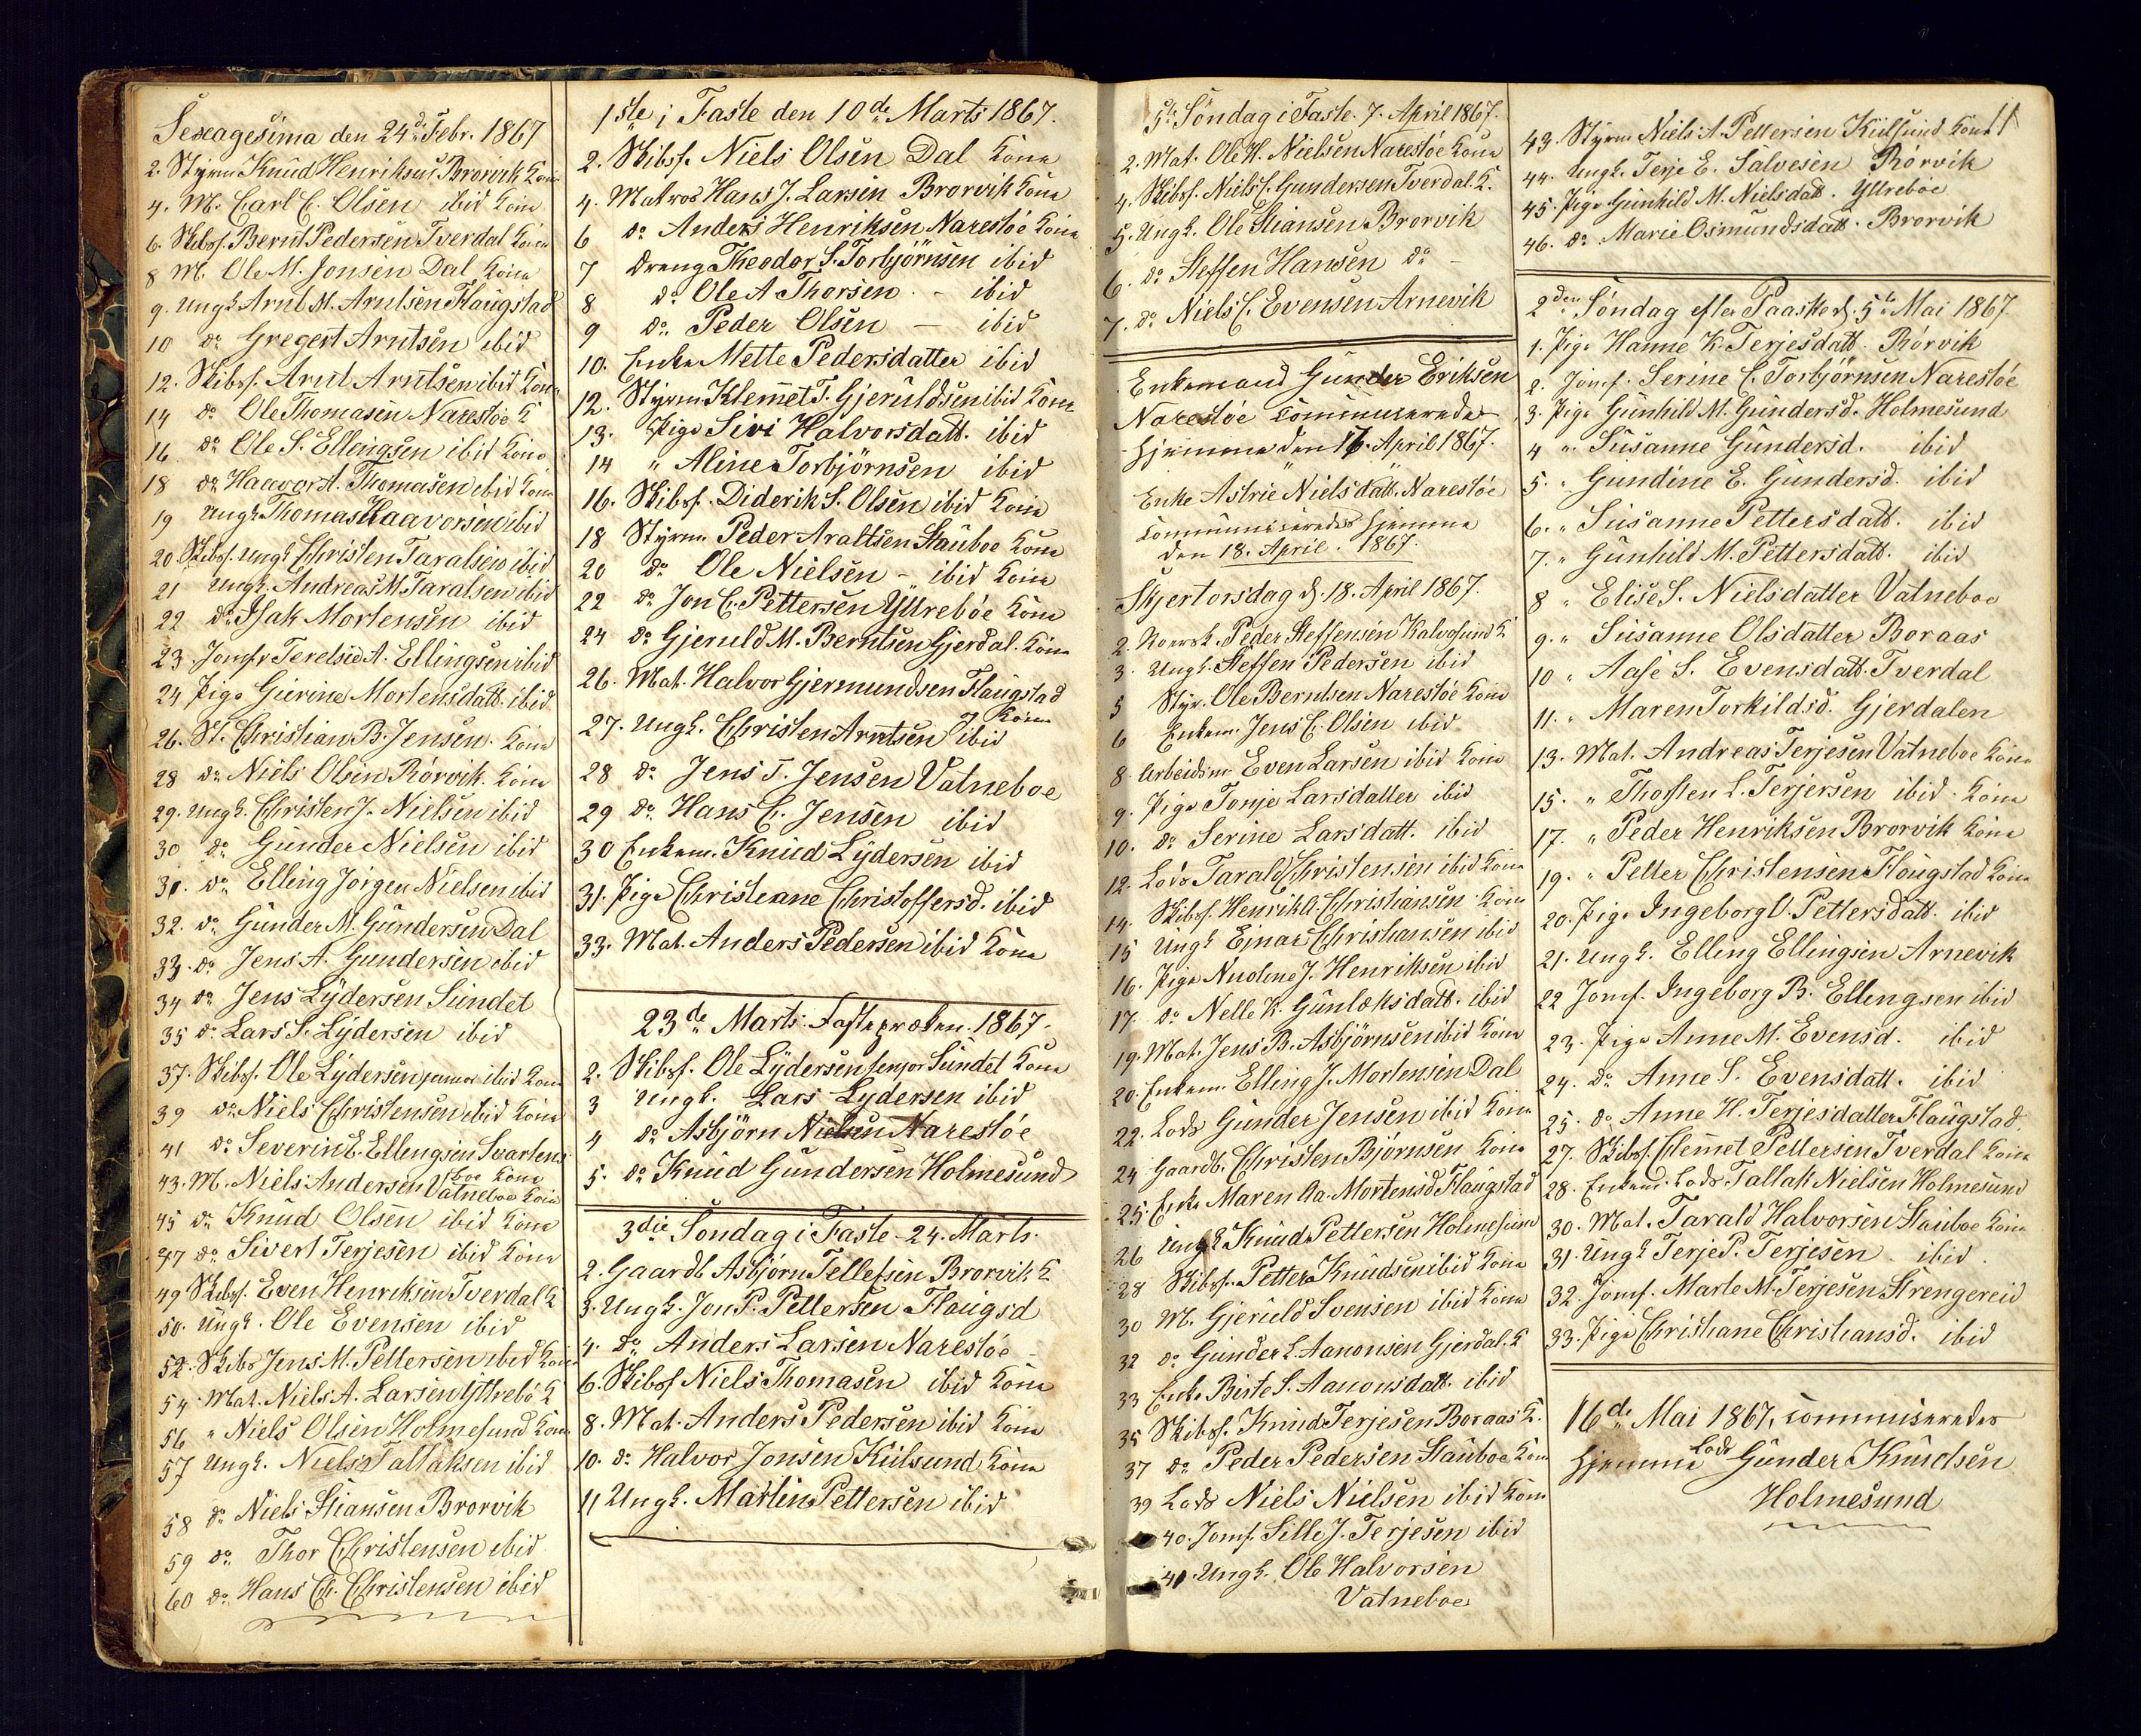 Sexagesima den 24de Febr. 1867
2. Styrm Knud Henriksen Brorvik Kone
4. M. Carl C. Olsen ibid Kone
6. Skibsf. Bernt Pedersen Tverdal Kone
8 M. Ole M. Jonsen Dal Kone
9. Ungk Arnt M. Arntsen Flaugstad
10 do Gregert Arntsen ibid
12. Skibsf. Arnt Arntsen ibid Kone
14 do Ole Thomasen Narestöe K
16 do Ole S. Ellingsen ibid Kone
18 do Haavor A. Thomasen ibid Kone
19 Ungk Thomas Haavorsen ibid
20 Skibsf. Ungk Christen Taralsen ibid
21 Ungk. Andreas M. Taralsen ibid
22 do Isak Mortensen ibid
23. Jomfr Terelsie A. Ellingsen ibid
24 Pige Gurine Mortensdatt. ibid.
26. St. Christian B. Jensen. Kone
28 do Niels Olsen Rörvik. Kone
29. Ungk. Christen J. Nielsen ibid
30 do Gunder Nielsen ibid
31. do Elling Jörgen Nielsen ibid
32. do Gunder M. Gundersen Dal
33. do Jens A. Gundersen ibid
34 do Jens Lydersen Sundet
35 do Lars S. Lydersen ibid
37. Skibsf. Ole Lydersen junior ibid Kone
39 do Niels Christensen ibid Kone
41 do Severin E. Ellingsen Svartens
boe Kone
43. M. Niels Andersen Vatneboe Kone
45 do Knud Olsen ibid Kone
47 do Sivert Terjesen ibid Kone
49 Skibsf. Even Henriksen Tverdal K
50. Ungk. Ole Evensen ibid
52. Skibs Jens M. Pettersen ibid Kone
54. Mat. Niels A. Larsen Yttrebö K
56 " Niels Olsen Holmesund Kone
57 Ungk. Niels Tallaksen ibid
58 do Niels Stiansen Brorvik
59 do Thor Christensen ibid
60 do Hans Ch. Christensen ibid
1ste i Faste den 10de Marts 1867.
2. Skibsf. Niels Olsen Dal Kone
4. Matros Hans J. Larsen Brorvik Kone
6 do Anders Henriksen Narestöe Kone
7 Dreng Theodor S. Torbjörnsen ibid
8 do Ole A Thorsen - ibid
9 do Peder Olsen - ibid
10. Enke Mette Pedersdatter ibid
12. Styrm. Klemet T. Gjeruldsen ibid Kone
13. Pige Sivi Halvorsdatt. ibid
14 " Aline Torbjörnsen ibid
16. Skibsf. Diderik S. Olsen ibid Kone
18 Styrm Peder Araltsen Stauboe Kone
20 do Ole Nielsen - ibid Kone
22 do Jon C. Pettersen Yttreböe Kone
24 do Gjeruld M. Berntsen Gjerdal. Kone
26. Mat. Halvor Gjermundsen Flaugstad
Kone
27. Ungk. Christen Arntsen ibid
28 do Jens T. Jensen Vatneboe
29 do Hans C. Jensen ibid
30 Enkem. Knud Lydersen ibid
31. Pige Christeane Christoffersd. ibid
33. Mat. Anders Pedersen ibid Kone
23de Marts. Fastepræken. 1867.
2. Skibsf. Ole Lydersen senjor Sundet Kone
3 Ungk. Lars Lydersen ibid
4 do Asbjörn Nielsen Narestöe
5. do Knud Gundersen Holmesund
3die Söndag i Faste 24. Marts.
2. Gaardb Asbjörn Tellefsen Brorvik K
3. Ungk. Jon P. Pettersen Flaugsd
4. do Anders Larsen Narestöe
6. Skibsf Niels Thomasen ibid Kone
8. Mat. Anders Pedersen ibid Kone
10. do Halvor Jonsen Kilsund Kone
11 Ungk. Martin Pettersen ibid
5te Söndag i Faste. 7. April 1867.
2. Mat. Ole H. Nielsen Narestöe Kone
4. Skibsf. Niels J. Gundersen Tverdal. K.
5. Ungk. Ole Stiansen Brorvik
6. do Steffen Hansen do -
7. do Niels C. Evensen Arnevik
Enkemand Gunder Eriksen
Narestöe Communicerede
hjemme den 17. April 1867.
Enke Astrie Nielsdatt. Narestöe
Communicerede hjemme
den 18. April. 1867.
Skjertorsdag d. 18. April 1867.
2. Peder Steffensen Kalvesund K
3. Ungk. Steffen Pedersen ibid
5 Styr. Ole Berntsen Narestöe Kone
6 Enkem. Jens C. Olsen ibid
8. Arbeidsm Even Larsen ibid Kone
9. Pige Tonje Larsdatter ibid
10. do Serine Larsdatt. ibid
12. Lods Tarald Christensen ibid Kone
14. Skibsf. Henrik A. Christiansen. Kone
15 Ungk Einar Christiansen ibid
16. Pige J. Henriksen ibid
17. do Nelle K. Gunlæksdatt. ibid
19. Mat. Jens B. Asbjörnsen ibid Kone
20. Enkem. Elling J. Mortensen Dal
22. Lods Gunder Jensen ibid Kone
24 Gaardb. Christen Björnsen Kone
25. Enke Maren Aa. Mortensd Flaugstad
26 Ungk Knud Pettersen Holmesund
28 Skibsf. Petter Knudsen ibid Kone
30 M. Gjeruld Svensen ibid Kone
32 do Gunder L. Aanonsen Gjerdal. K
33 Enke Birte S. Aanonsdatt. ibid
35 Skibsf. Knud Terjesen Boraas K.
37 do Peder Pedersen Stauboe Kone
39 Lods Niels Nielsen ibid Kone
40. Jomf. Sille J. Terjesen ibid
41. Ungk. Ole Halvorsen
Vatneboe
11
43. Styrm Niels A. Pettersen Kilsund Kone
44. Ungk. Terje E. Salvesen Rörvik
45. Pige Gunhild M. Nielsdatt. Yttreböe
46. do Marie Osmundsdatt. Brorvik
2den Söndag efter Paaske d. 5te Mai 1867
1. Pige Hanne K. Terjesdatt. Rörvik
2. Jomf. Serine C. Torbjörnsen Narestöe
3. Pige Gunhild M. Gundersd. Holmesund
4 " Susanne Gundersd. ibid
5. " Gundine E. Gundersd. ibid
6. " Susanne Pettersdatt. ibid
7. " Gunhild M. Pettersdatt. ibid
8 " Elise S. Nielsdatter Vatneboe
9. " Susanne Olsdatter Boraas
10 " Aase S. Evensdatt. Tverdal
11. " Maren Torkildsd. Gjerdalen
13. Mat. Andreas Terjesen Vatneboe Kone
15. " Thosten L. Terjersen ibid. Kone
17. " Peder Henriksen Brorvik Kone
19. " Petter Christensen Flougstad Kone
20. Pige Ingeborg O. Pettersdatt. ibid
21. Ungk. Elling Ellingsen Arnevik
22 Jomf. Ingeborg B. Ellengsen ibid
23. Pige Anne M. Evensd. ibid
24. do Anne S. Evensdatt. ibid
25. do Anne H. Terjesdatter Flaugstad.
27. Skibsf. Clemet Pettersen Tverdal Kone
28. Enkem. Lods Tallak Nielsen Holmesund
30. Mat. Tarald Halvorsen Stauboe Kone
31. Ungk Terje P. Terjesen ibid.
32. Jomf. Marte M. Terjesen Strengereid
33. Pige Christiane Christiansd. ibid
16de Mai 1867, Commiserede
hjemme Lods Gunder Knudsen
Holmesund